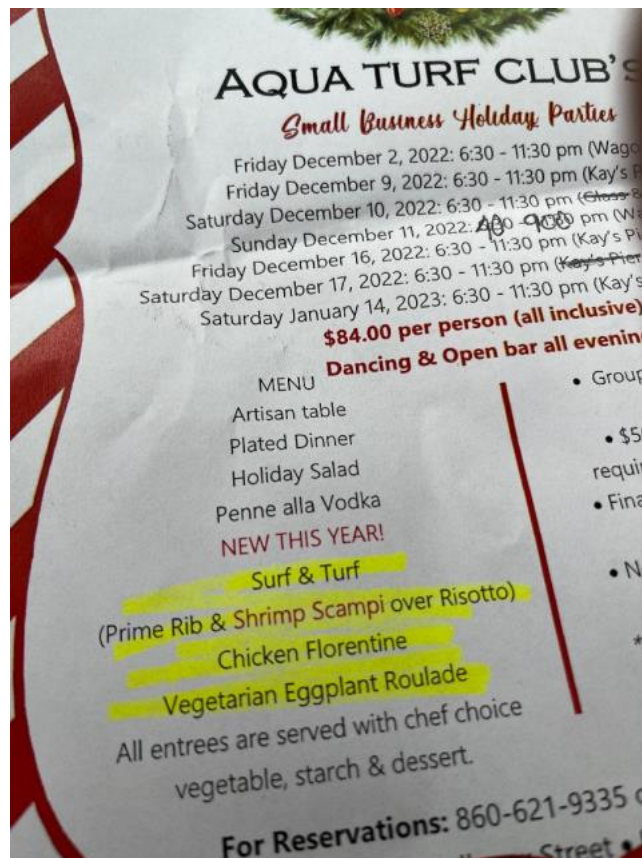 AQUA TURF CLUB'S
Small Business Holiday Parties
Friday December 2, 2022: 6:30 - 11:30 pm (Wago
Friday December 9, 2022: 6:30 - 11:30 pm (Kay's P
Saturday December 10, 2022: 6:30 - 11:30 pm (Glass &
Sunday December 11, 2022: 400 - 900 pm (Wa
Friday December 16, 2022: 6:30 - 11:30 pm (Kay's Pi
Saturday December 17, 2022: 6:30 - 11:30 pm (Kay's Pier
Saturday January 14, 2023: 6:30 - 11:30 pm (Kay's
$84.00 per person (all inclusive)
Dancing & Open bar all evening
MENU
Artisan table
Plated Dinner
Holiday Salad
Penne alla Vodka
NEW THIS YEAR!
Surf & Turf
(Prime Rib & Shrimp Scampi over Risotto)
Chicken Florentine
Vegetarian Eggplant Roulade
All entrees are served with chef choice
vegetable, starch & dessert.
• Group
• $50
requi
• Fina
• N
*
For Reservations: 860-621-9335 o
Street •